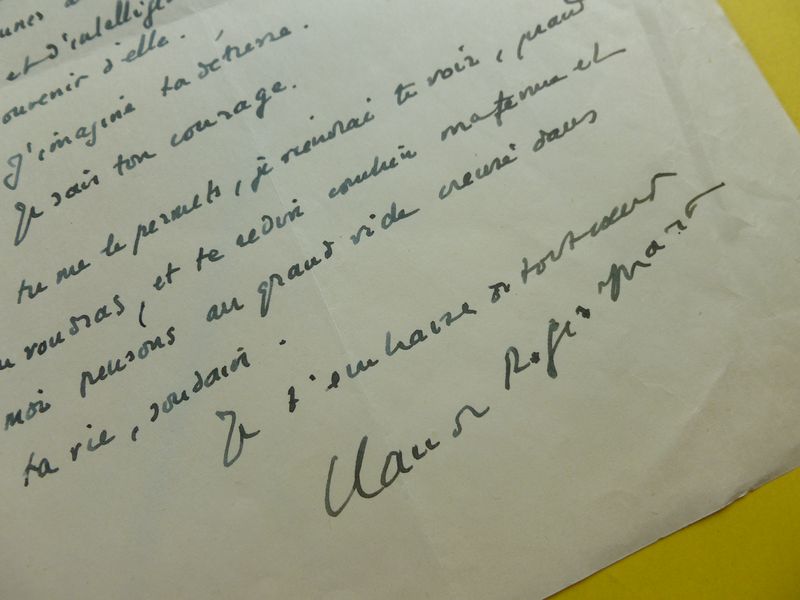 et d'intellige
ouvenir d'elle.
J'imagine ta détresse.
Je sais ton courage.
tu me le permets, je viendrai te voir, quand
u voudras, et te redirai combien ma femme et
moi pensons au grand vide creusé dans
ta vie, soudain.
Je t'embrasse de tout coeur
Claude Roger-Marx